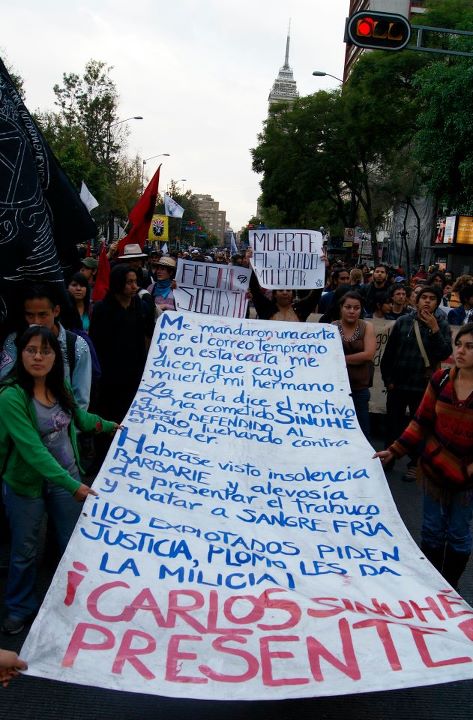 MUERTE
AL ESTADO
MILITAR
Me mandaron una carta
por el correo temprano
y en esta carta me
dicen que cayó
muerto mi hermano
La carta dice el motivo
que ha cometido SINUHÉ
HABER DEFENDIDO AL
PUEBLO luchando contra
el poder
Habráse visto insolencia
BARBARIE y alevosía
de presentar el trabuco
y matar a SANGRE FRÍA
¡LOS EXPLOTADOS PIDEN
JUSTICIA, PLOMO LES DA
LA MILICIA!
¡CARLOS SINUHÉ
PRESENTE!